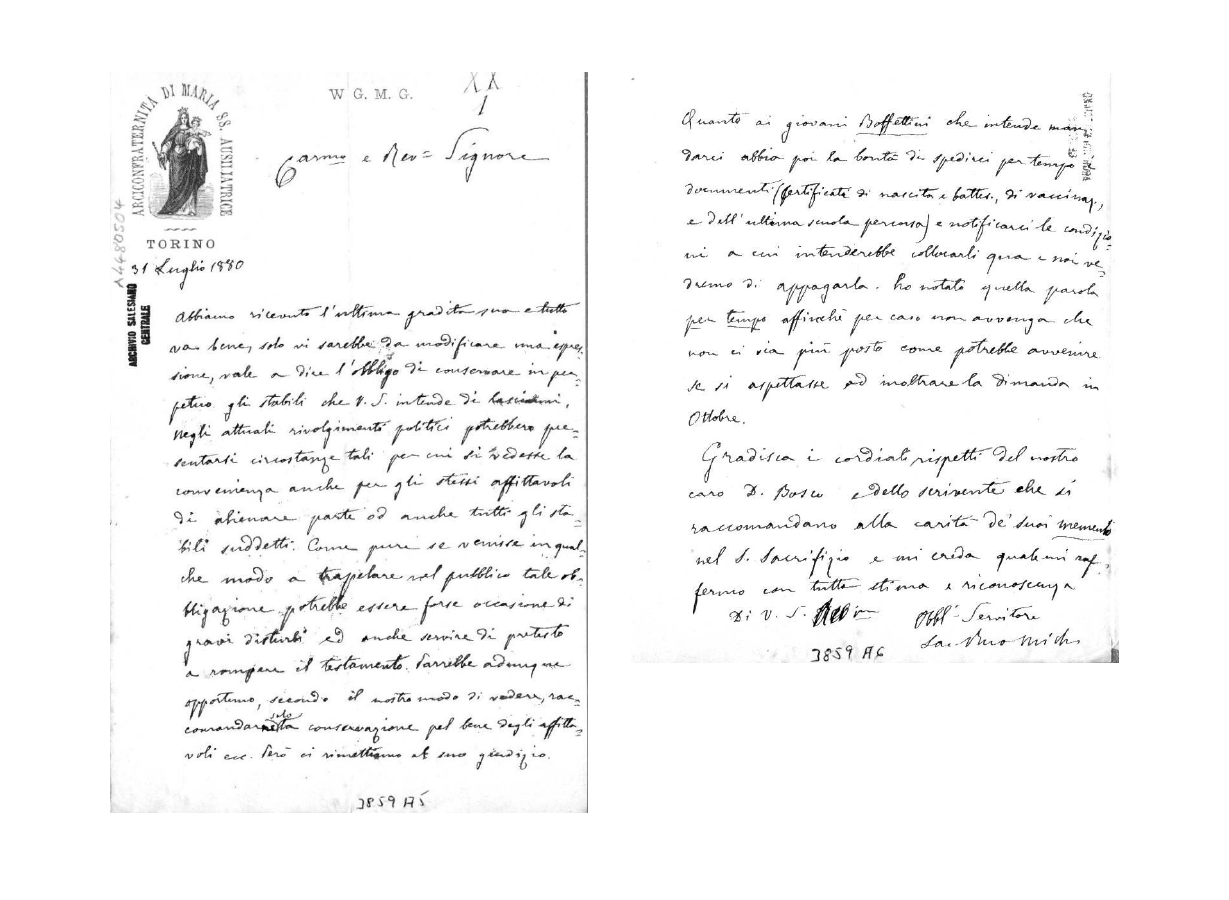 ARCICONFRATERNITÀ DI MARIA SS. AUSILIATRICE
TORINO
W G. M. G.
XX
I
Carmo e Revmo Signore
A4480504
31 Luglio 1880
ARCHIVIO SALESIANO
CENTRALE
Abbiamo ricevuto l'ultima gradita sua e tutto
va bene, solo vi sarebbe da modificare una espres-
sione, vale a dire l'obbligo di conservare in per-
petuo gli stabili che V. S. intende di lasciarmi,
Negli attuali rivolgimenti politici potrebbero pre-
sentarsi circostanze tali per cui si vedesse la
convenienza anche per gli stessi affittavoli
di alienare parte od anche tutti gli sta-
bili suddetti. Come pure se venisse in qual-
che modo a trapelare nel pubblico tale ob-
bligazione potrebbe essere forse occasione di
gravi disturbi ed anche servire di pretesto
a rompere il testamento. Sarrebbe adunque
opportuno, secondo il nostro modo di vedere, rac-
comandare solo la conservazione pel bene degli affitta-
voli ecc. Però ci rimettiamo al suo giudizio.
3859 A5
Quanto ai giovani Boffettini che intende man-
darci abbia poi la bontà di spedirci per tempo i
documenti (certificato di nascita e battes., di vaccinaz.,
e dell'ultima scuola percorsa) e notificarci le condizio-
ni a cui intenderebbe collocarli qua e noi ve-
dremo di appagarla. Ho notato quella parola
per tempo affinchè per caso non avvenga che
non ci sia più posto come potrebbe avvenire
se si aspettasse ad inoltrare la dimanda in
Ottobre.
Gradisca i cordiali rispetti del nostro
caro D. Bosco e dello scrivente che si
raccomandano alla carità de' suoi memento
nel S. Sacrifizio e mi creda quale mi raf-
fermo con tutta stima e riconoscenza
Di V. S. Rev.ma
Obbl. Servitore
Sac. Rua Mich.
3859 A6